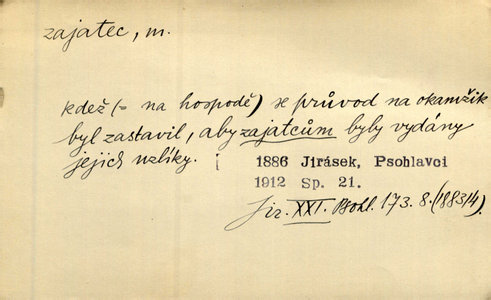 zajatec, m.
kdež (= na hospodě) se průvod na okamžik
byl zastavil, aby zajatcům byly vydány
jejich uzlíky.
1886 Jirásek, Psohlavci
1912 Sp. 21.
Jir. XXI. Psohl. 173. 8. (1883/4)